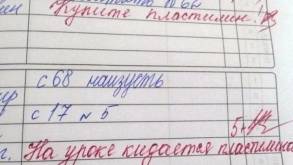 Купите пластилин!
с 68 наизусть
с 17 № 5
5
На уроке кидается пластилино